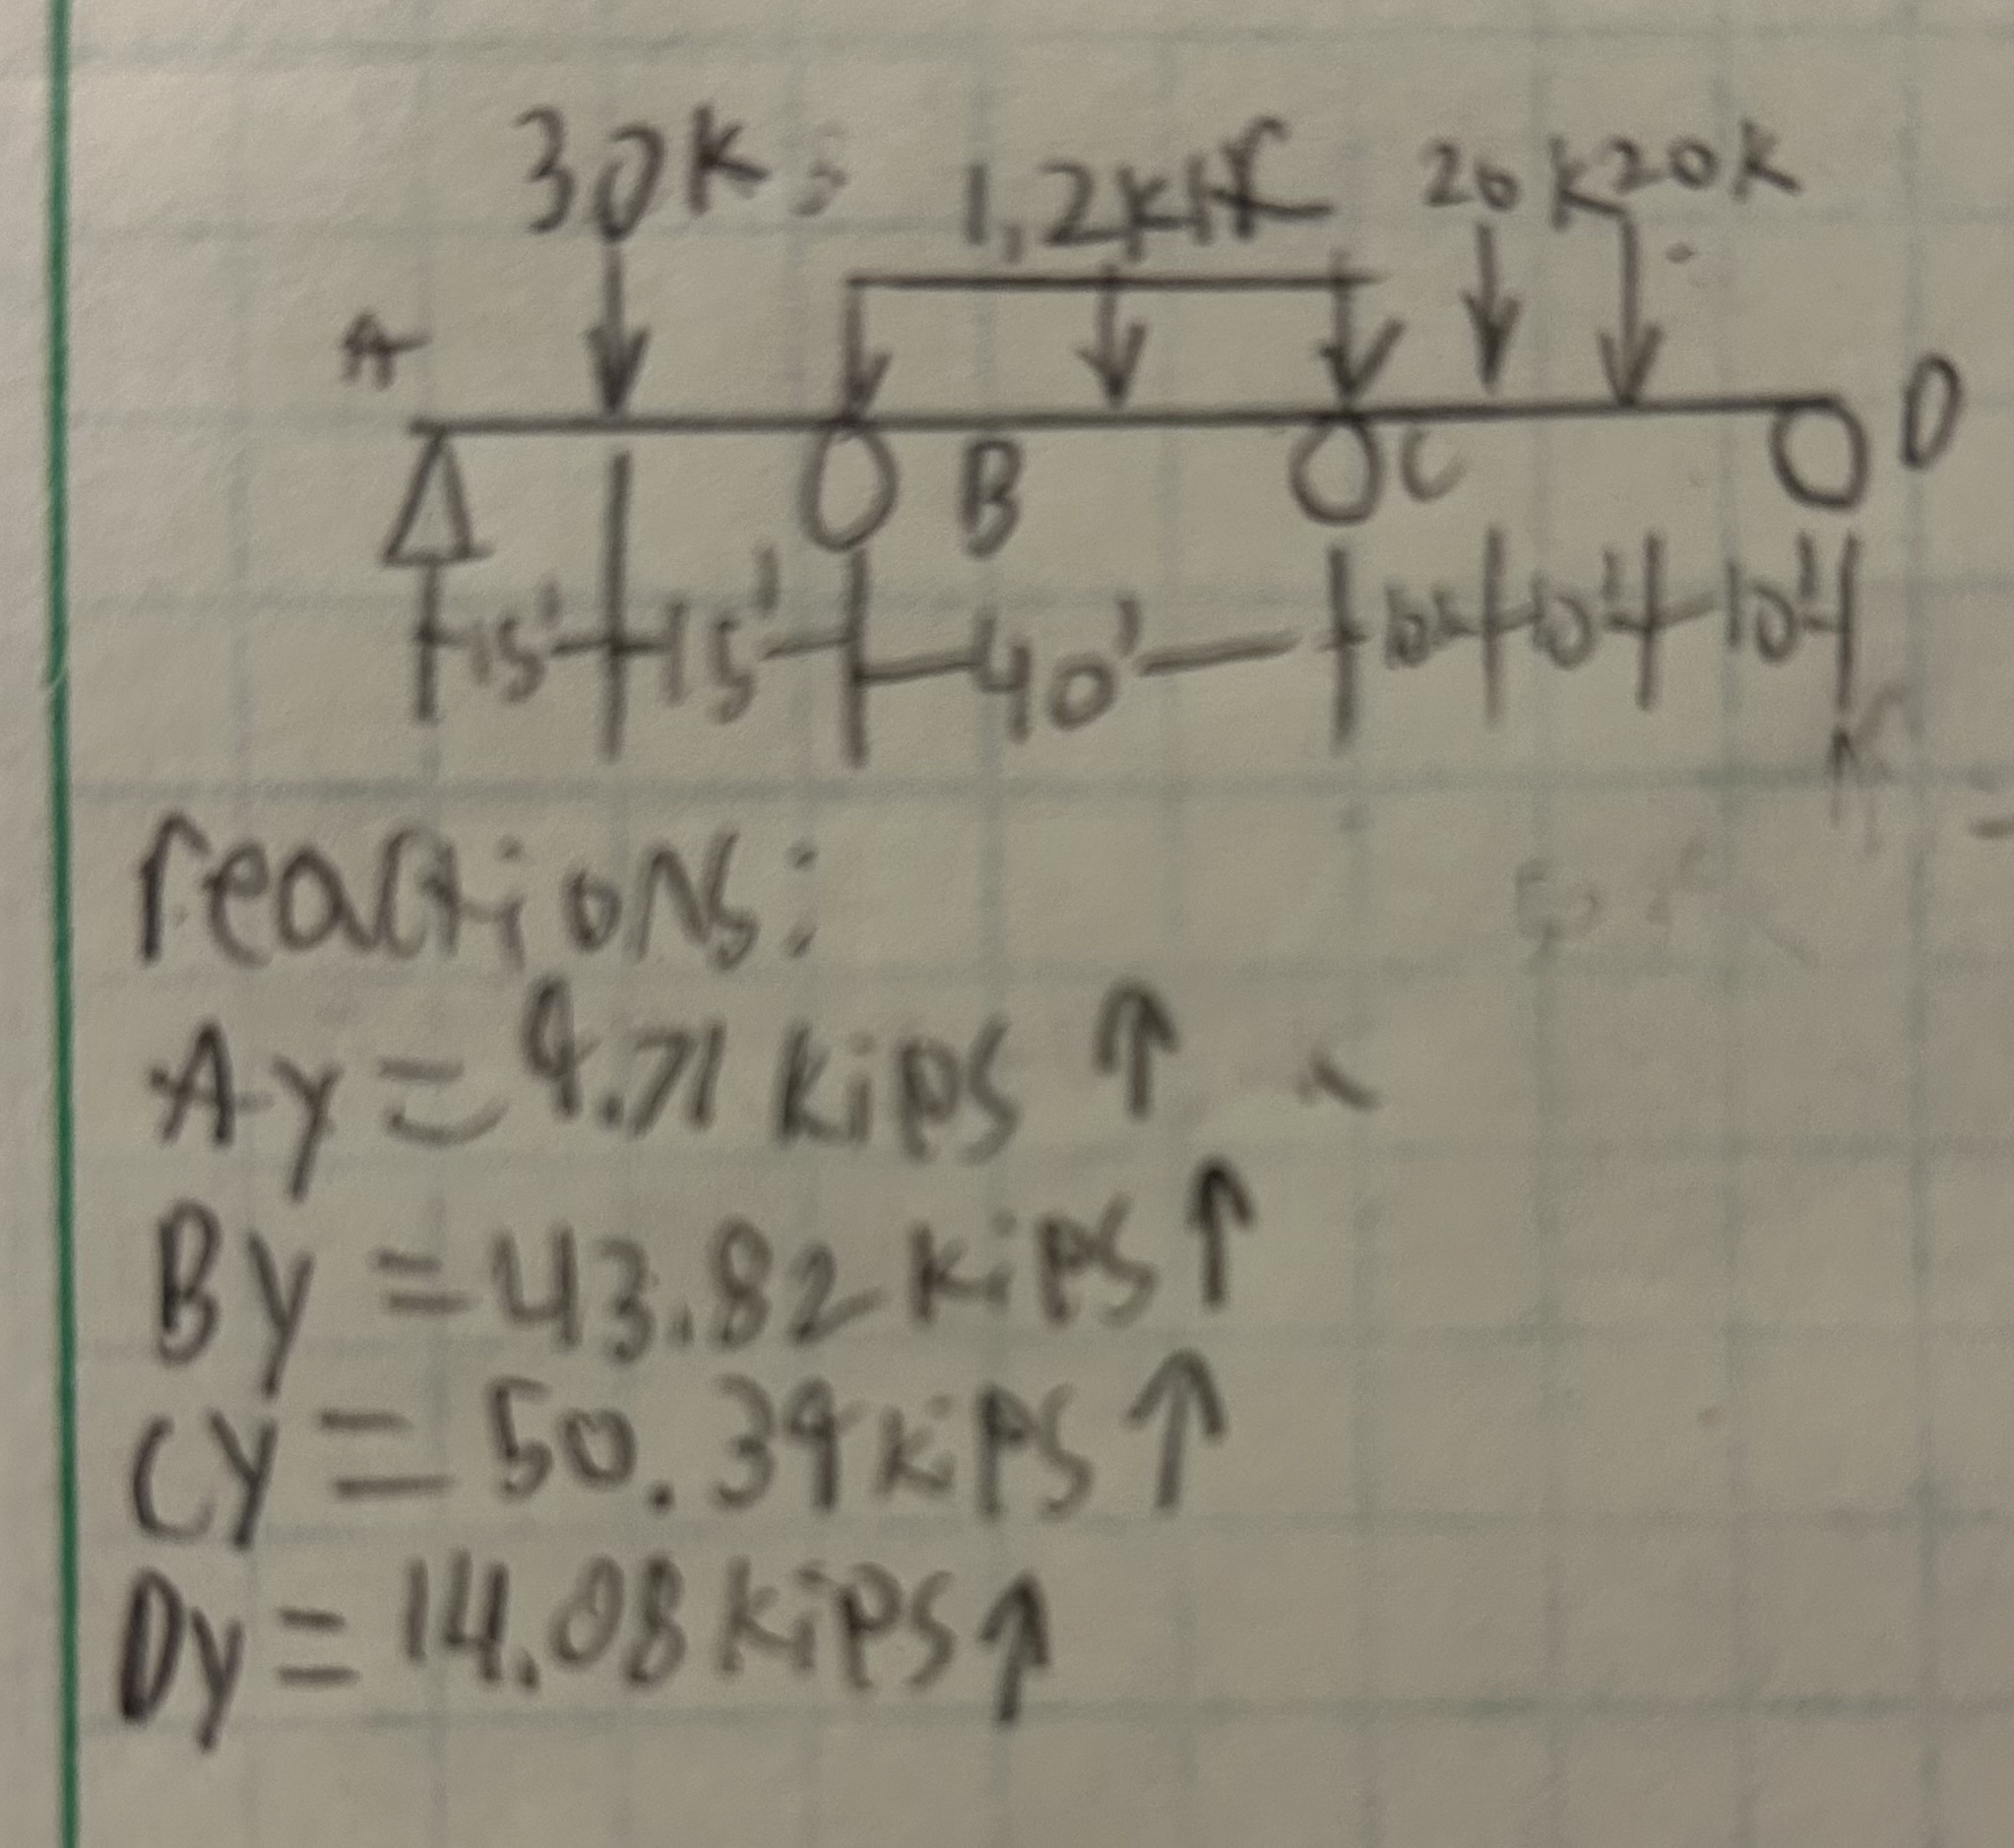 30k
1,2klf
20k 20k
A
B
C
D
15' 15' 40' 10' 10' 10'
reactions:
Ay = 9.71 kips ↑
By = 43.82 kips ↑
Cy = 50.39 kips ↑
Dy = 14.08 kips ↑